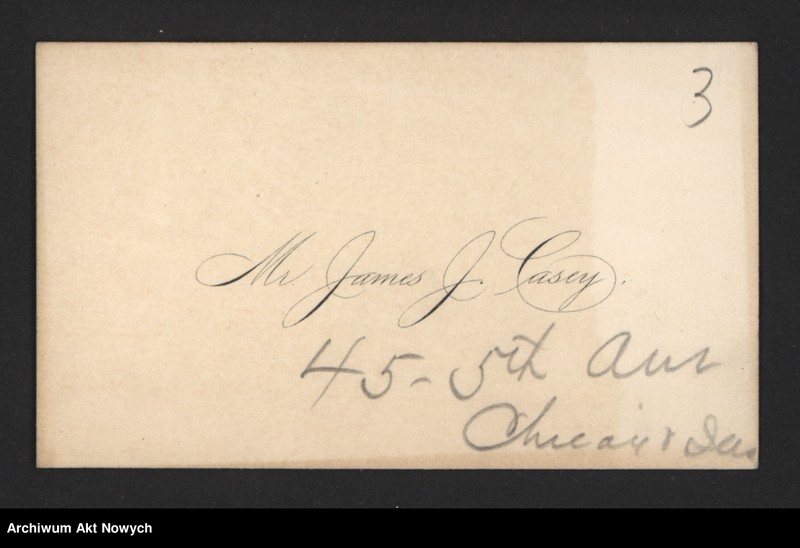 3
Mr. James J. Casey.
45- 5th Ave
Chicago Ills
Archiwum Akt Nowych